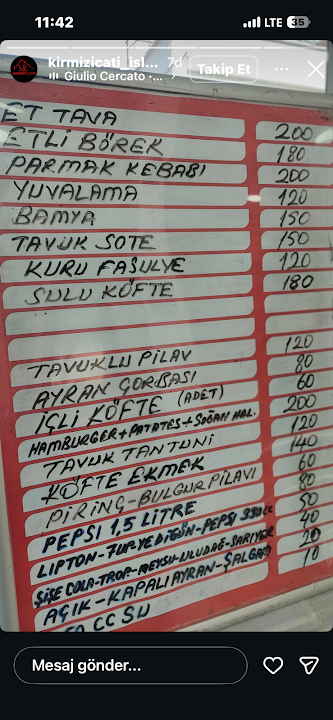 11:42
LTE 35
kirmizicati_isl... 7d
Giulio Cercato · ...
Takip Et
ET TAVA 200
ETLİ BÖREK 180
PARMAK KEBABI 200
YUVALAMA 120
BAMYA 150
TAVUK SOTE 150
KURU FASULYE 120
SULU KÖFTE 180
TAVUKLU PİLAV 120
AYRAN ÇORBASI 80
İÇLİ KÖFTE (ADET) 60
HAMBURGER+PATATES+SOĞAN HAL. 200
TAVUK TANTUNİ 120
KÖFTE EKMEK 140
PİRİNÇ-BULGUR PİLAVI 60
PEPSİ 1,5 LİTRE 80
LIPTON-7UP-YEDİGÜN-PEPSİ 330cc 50
ŞİŞE COLA-TROP.-MEYSU-ULUDAĞ-SARIYER 40
AÇIK-KAPALI AYRAN-ŞALGAM 20
CC SU 10
Mesaj gönder...